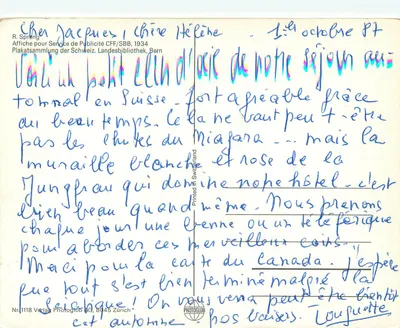 Cher Jacques, Chère Hélène. 1er octobre 87
R. Spreng
Affiche pour Service de Publicité CFF/SBB, 1934
Plakatsammlung der Schweiz. Landesbibliothek, Bern
Voici un petit clin d'œil de notre séjour au-
tomnal en Suisse. Fort agréable grâce
au beau temps. Cela ne vaut peut-être
pas les chutes du Niagara ... mais la
muraille blanche et rose de la
Jungfrau qui domine notre hôtel c'est
bien beau quand même. Nous prenons
chaque jour une benne ou un téléférique
pour aborder ces merveilleux
Merci pour la carte du Canada. J'espère
que tout s'est bien terminé malgré la
fatigue! On vous verra peut être bientôt
cet automne. Nos baisers. Touguette
Printed in Switzerland
Nr. 1118 Verlag Photoglob AG, 8045 Zürich
PHOTOGLOB